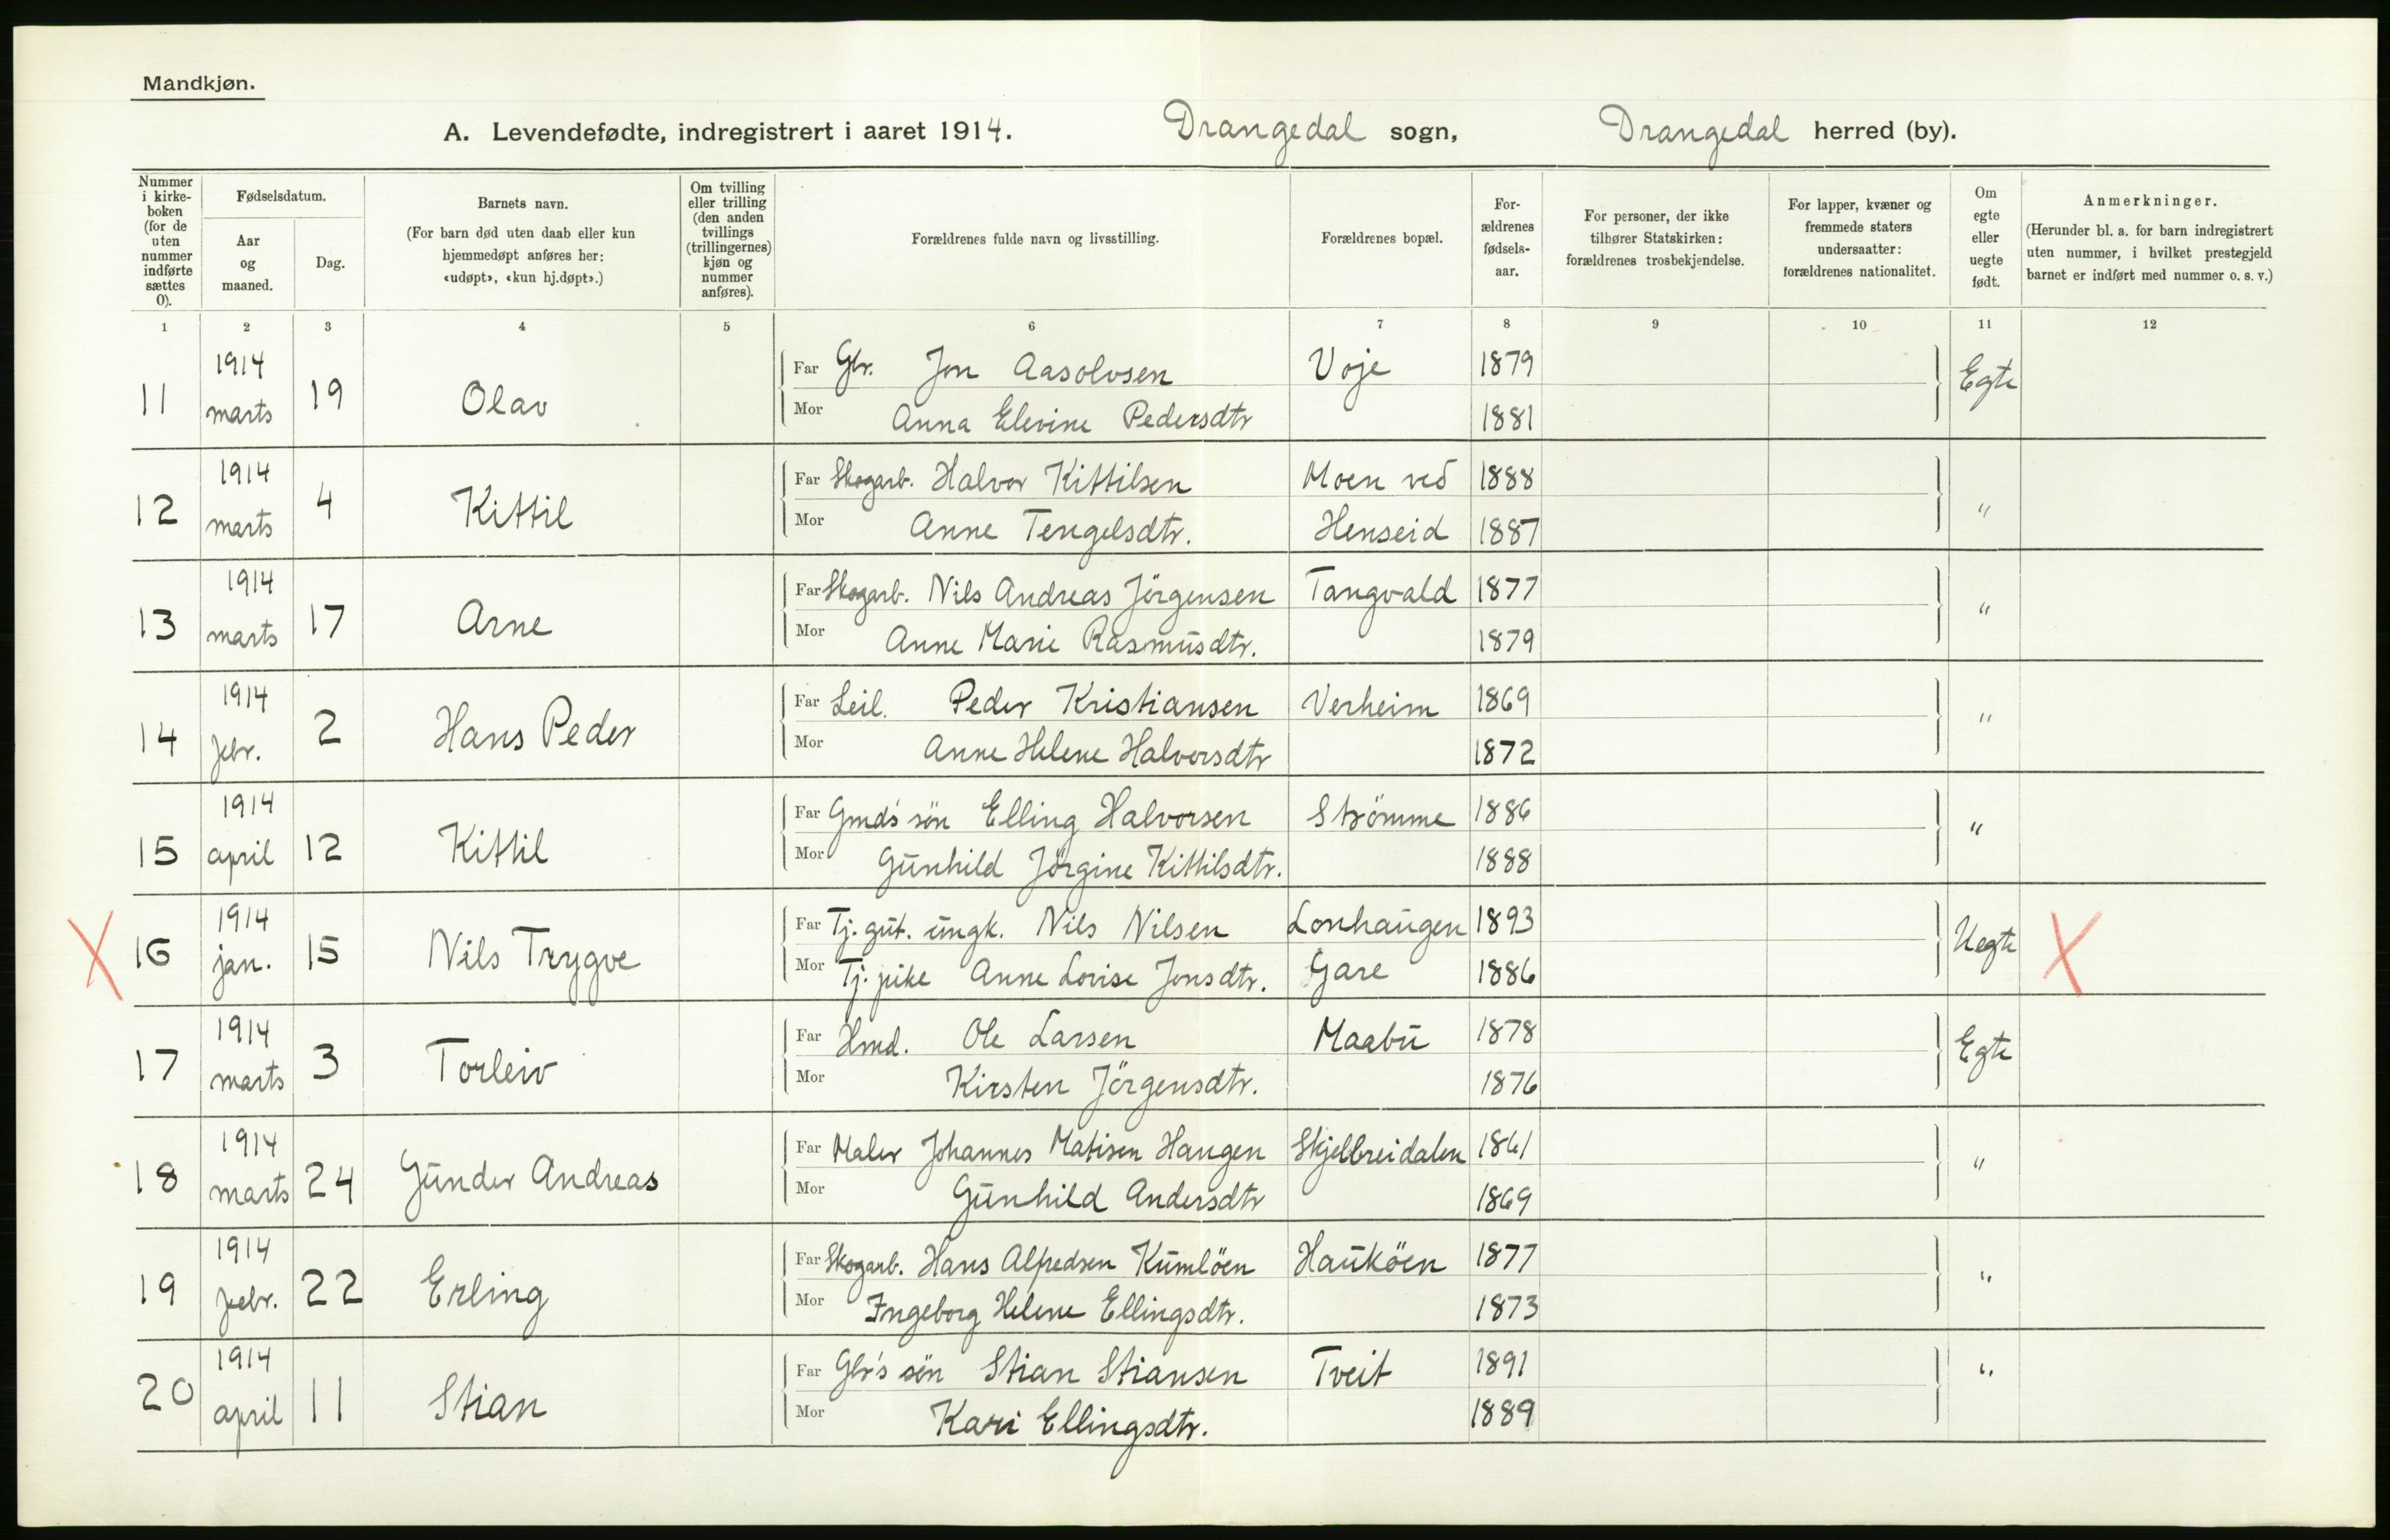 Mandkjøn.
A. Levendefødte, indregistrert i aaret 1914. Drangedal sogn, Drangedal herred (by).
Nummer i kirke-boken (for de uten nummer indførte sættes 0).
Fødselsdatum.
Aar og maaned.
Dag.
Barnets navn.
(For barn død uten daab eller kun hjemmedøpt anføres her: «udøpt», «kun hj.døpt».)
Om tvilling eller trilling (den anden tvillings (trillingernes) kjøn og nummer anføres).
Forældrenes fulde navn og livsstilling.
Forældrenes bopæl.
For-ældrenes fødsels-aar.
For personer, der ikke tilhører Statskirken: forældrenes trosbekjendelse.
For lapper, kvæner og fremmede staters undersaatter: forældrenes nationalitet.
Om egte eller uegte født.
Anmerkninger.
(Herunder bl. a. for barn indregistrert uten nummer, i hvilket prestegjeld barnet er indført med nummer o. s. v.)
1 2 3 4 5 6 7 8 9 10 11 12
1914 Far Gbr. Jon Aasolvsen Voje 1879 Egte
11 marts 19 Olav Mor Anna Elevine Pedersdtr 1881
1914 Far Skogarb. Halvor Kittilsen Moen ved 1888
12 marts 4 Kittil Mor Anne Tengelsdtr. Henseid 1887 "
1914 Far Skogarb. Nils Andreas Jörgensen Tangvald 1877
13 marts 17 Arne Mor Anne Marie Rasmusdtr. 1879 "
1914 Far Leil. Peder Kristiansen Verheim 1869
14 febr. 2 Hans Peder Mor Anne Helene Halvorsdtr 1872 "
1914 Far Gmd's sön Elling Halvorsen Strömme 1886
15 april 12 Kittil Mor Gunhild Jörgine Kittilsdtr. 1888 "
1914 Far Tj. gut. ungk. Nils Nilsen Lonhaugen 1893 Uegte
X 16 jan. 15 Nils Trygve Mor Tj. pike Anne Lovise Jonsdtr. Gare 1886 X
1914 Far Hmd. Ole Larsen Maabu 1878 Egte
17 marts 3 Torleiv Mor Kirsten Jörgensdtr. 1876
1914 Far Maler Johannes Matisen Haugen Skjelbreidalen 1861
18 marts 24 Gunder Andreas Mor Gunhild Andersdtr 1869 "
1914 Far Skogarb. Hans Alfredsen Kumlöen Hauköen 1877
19 febr. 22 Erling Mor Ingeborg Helene Ellingsdtr. 1873 "
1914 Far Gbr's sön Stian Stiansen Tveit 1891 "
20 april 11 Stian Mor Kari Ellingsdtr. 1889